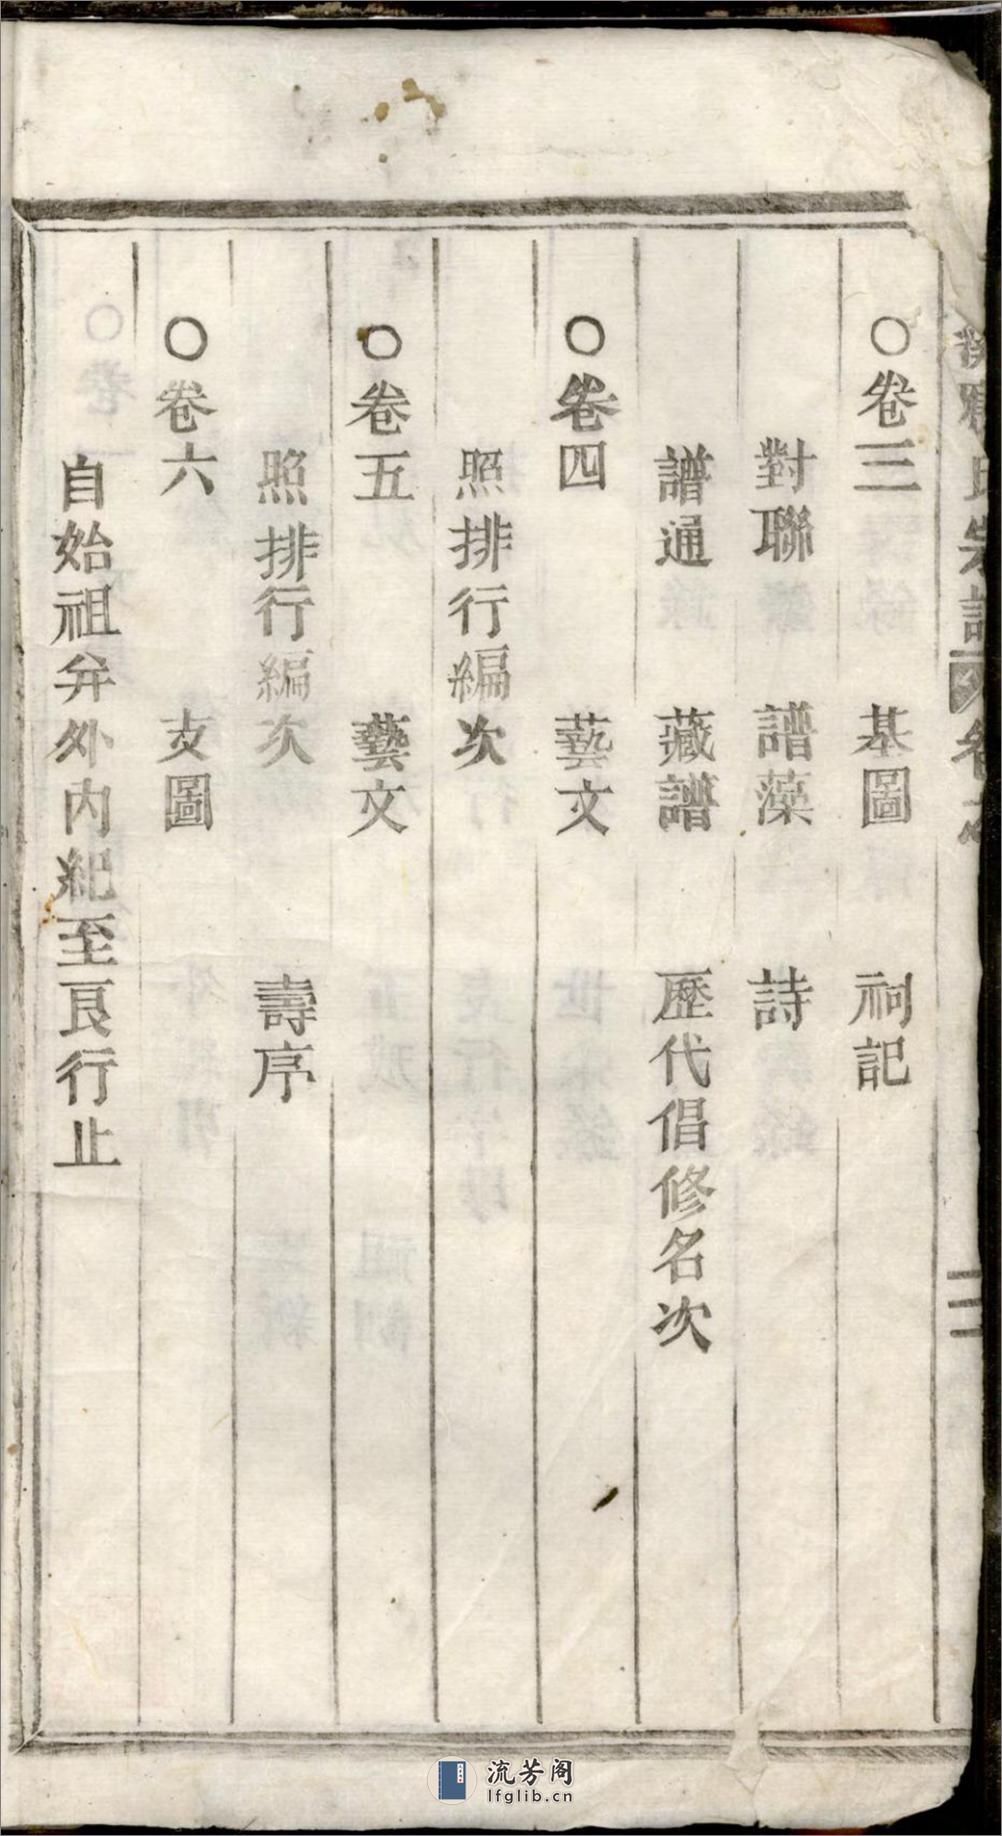 ○卷三 基圖 祠記
對聯 譜藻 詩
譜通 藏譜 歷代倡修名次
○卷四 藝文
照排行編次
○卷五 藝文
照排行編次 壽序
○卷六 支圖
自始祖弁外內紀至良行止
氏宗譜 卷之
三
流芳阁
lfglib.cn